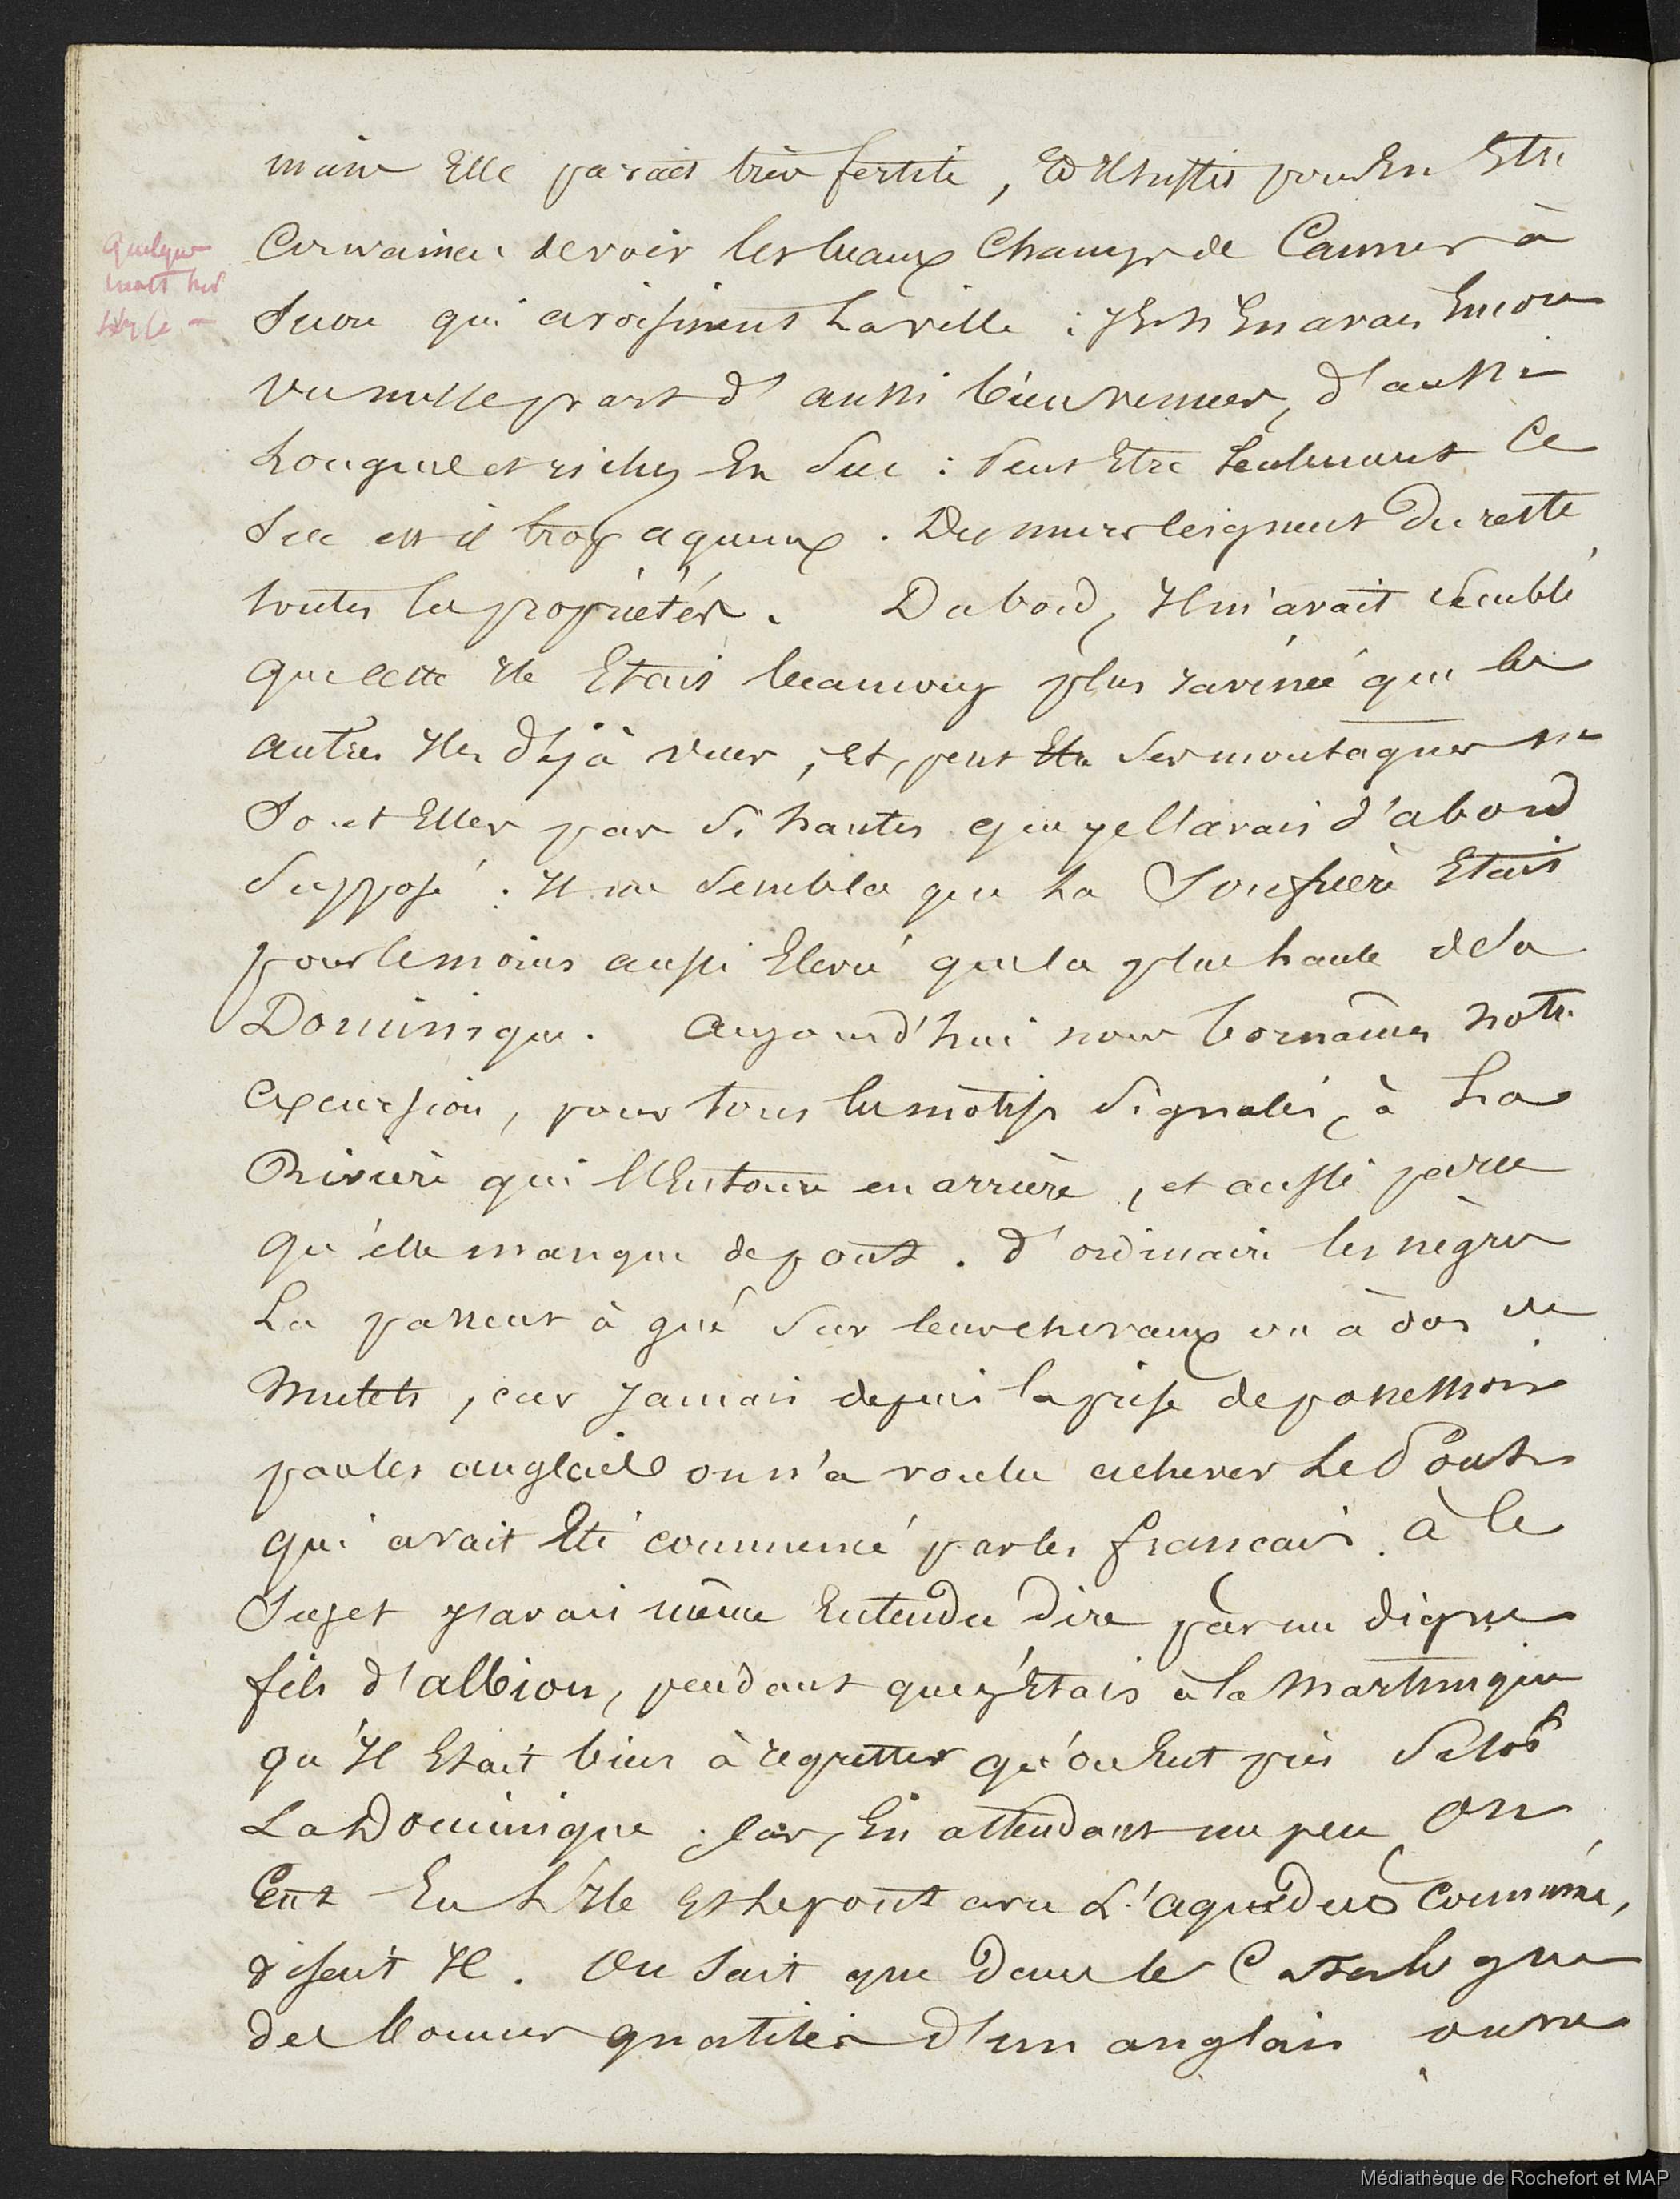 mais Elle parait très fertile, Et Il suffit pour En Etre
Convaincu de voir les beaux Champs de Cannes à
Quelques
mots sur
Sucre qui avoisinent La ville : Je N'En avais Encore
vu nulle part d'aussi bien venues, d'aussi
Longues et riches En Suc : Peut Etre Seulement Ce
Suc est il trop aqueux. Des murs ceignent Du reste
toutes les propriétés. Dabord, Il m'avait Semblé
que cette Ile Etait beaucoup plus ravinée que les
autres Iles déjà vues, Et, peut Etre Ses montagnes ne
Sont Elles pas Si hautes que je l'avais d'abord
Supposé : Il me Sembla que La Soufrière Etait
pour le moins aussi Elevée que la plus haute de La
Dominique. Aujourd'hui nous bornâmes Notre
Excursion, pour tous les motifs Signalés, à La
Rivière qui l'Entoure en arrière, et aussi parce
qu'elle manque de pont. d'ordinaire les nègres
La passent à gué Sur leurs chevaux ou à dos de
Mulets, car Jamais depuis la prise de possession
par les anglais on n'a voulu achever Le Pont
qui avait Eté commencé par les francais. à Ce
Sujet j'avais même Entendu Dire par un digne
fils d'albion, pendant que j'Etais à la Martinique
qu'Il Etait bien à regretter qu'on Eut pris Sitôt
La Dominique ; Car, En attendant un peu On
Eut Eu L'Ile Et le pont avec L'aqueduc Commencé,
disait Il. On Sait que Dans le Catalogue
des bonnes qualités d'un anglais